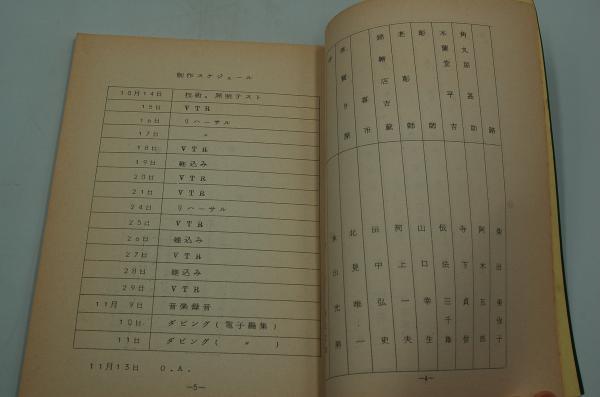 制作スケジュール
10月14日 技術、照明テスト
15日 VTR
16日 リハーサル
17日 〃
18日 VTR
19日 総込み
20日 VTR
21日 VTR
24日 リハーサル
25日 VTR
26日 総込み
27日 VTR
28日 総込み
29日 VTR
11月 9日 音楽録音
10日 ダビング(電子編集)
11日 ダビング( 〃 )
11月13日 O.A.
—5—
路
角丸屋甚助 阿木五郎
木蘭堂平吉 寺下貞信
彫師 伝法三千雄
老彫師 山口幸生
河上一夫
田中弘史
喜市 北見唯一
—4—